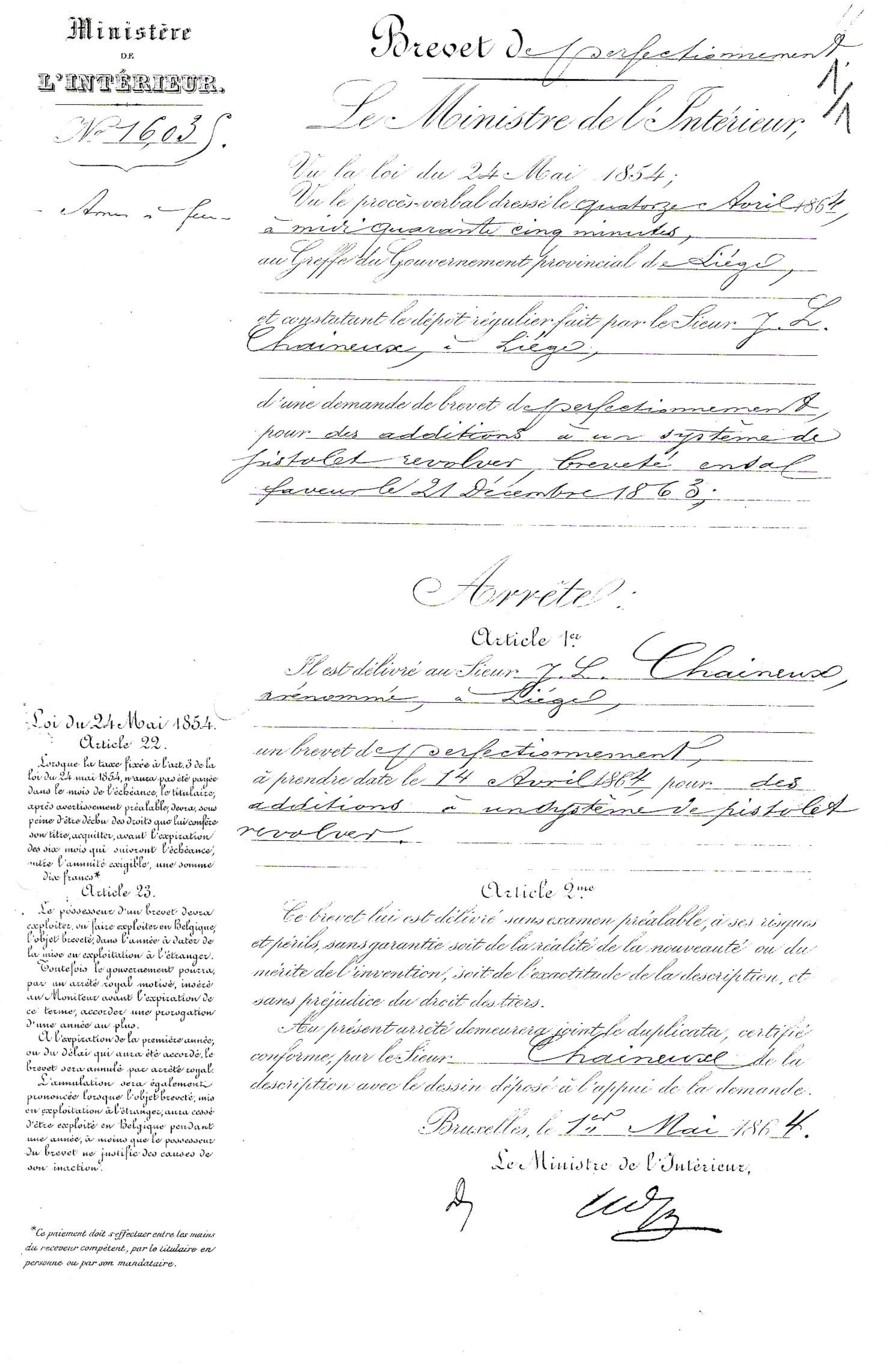 Ministère
DE
L'INTÉRIEUR.
No 16,035.
- Armes à feu -
Brevet de perfectionnement.
1/1
Le Ministre de l'Intérieur,
Vu la loi du 24 Mai 1854;
Vu le procès-verbal dressé le quatorze Avril 1864,
à midi quarante cinq minutes,
au Greffe du Gouvernement provincial de Liége,
et constatant le dépôt régulier fait par le Sieur J. L.
Chaineux, à Liége,
d'une demande de brevet de perfectionnement,
pour des additions à un système de
pistolet revolver, breveté en sa
faveur le 21 Décembre 1863;
Arrête:
Article 1er
Il est délivré au Sieur J. L. Chaineux,
prénommé, à Liége,
un brevet de perfectionnement,
à prendre date le 14 Avril 1864, pour des
additions à un système de pistolet
revolver.
Article 2me
Ce brevet lui est délivré sans examen préalable, à ses risques
et périls, sans garantie soit de la réalité de la nouveauté ou du
mérite de l'invention, soit de l'exactitude de la description, et
sans préjudice du droit des tiers.
Au présent arrêté demeurera joint le duplicata, certifié
conforme, par le Sieur Chaineux de la
description avec le dessin déposé à l'appui de la demande.
Bruxelles, le 1er Mai 1864.
Le Ministre de l'Intérieur,
Loi du 24 Mai 1854.
Article 22.
Lorsque la taxe fixée à l'art. 3 de la
loi du 24 mai 1854, n'aura pas été payée
dans le mois de l'échéance, le titulaire,
après avertissement préalable, devra, sous
peine d'être déchu des droits que lui confère
son titre, acquitter, avant l'expiration
des six mois qui suivront l'échéance,
outre l'annuité exigible, une somme
dix francs*
Article 23.
Le possesseur d'un brevet devra
exploiter, ou faire exploiter en Belgique,
l'objet breveté, dans l'année à dater de
la mise en exploitation à l'étranger.
Toutefois le gouvernement pourra,
par un arrêté royal motivé, inséré
au Moniteur avant l'expiration de
ce terme, accorder une prorogation
d'une année au plus.
A l'expiration de la première année,
ou du délai qui aura été accordé, le
brevet sera annulé par arrêté royal.
L'annulation sera également
prononcée lorsque l'objet breveté, mis
en exploitation à l'étranger, aura cessé
d'être exploité en Belgique pendant
une année, à moins que le possesseur
du brevet ne justifie des causes de
son inaction.
*Ce paiement doit s'effectuer entre les mains
du receveur compétent, par le titulaire en
personne ou par son mandataire.